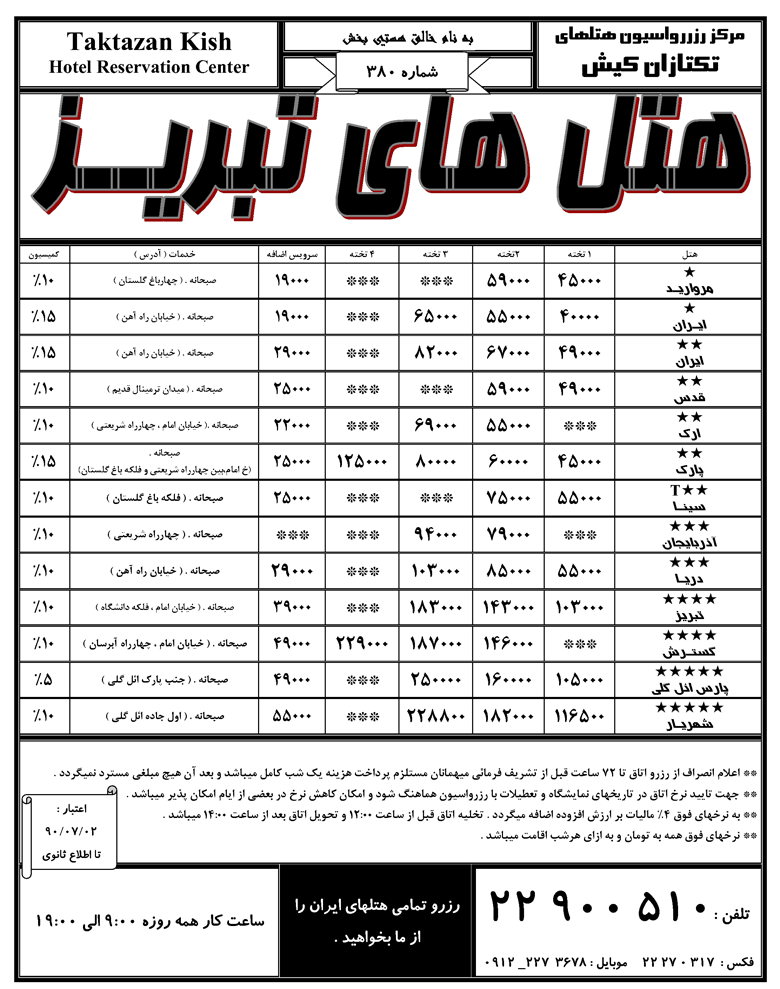 Taktazan Kish
Hotel Reservation Center
به نام خالق هستی بخش
شماره ۳۸۰
مرکز رزرواسیون هتلهای
تکتازان کیش
هتل های تبریز
هتل ۱ تخته ۲تخته ۳ تخته ۴ تخته سرویس اضافه خدمات ( آدرس ) کمیسیون
★
مروارید ۴۵۰۰۰ ۵۹۰۰۰ *** *** ۱۹۰۰۰ صبحانه . ( چهارباغ گلستان ) ۱۰٪
★
ایران ۴۰۰۰۰ ۵۵۰۰۰ ۶۵۰۰۰ *** ۱۹۰۰۰ صبحانه . ( خیابان راه آهن ) ۱۵٪
★★
ایران ۴۹۰۰۰ ۶۷۰۰۰ ۸۲۰۰۰ *** ۲۹۰۰۰ صبحانه . ( خیابان راه آهن ) ۱۵٪
★★
قدس ۴۹۰۰۰ ۵۹۰۰۰ *** *** ۲۵۰۰۰ صبحانه . ( میدان ترمینال قدیم ) ۱۰٪
★★
ارک *** ۵۵۰۰۰ ۶۹۰۰۰ *** ۲۲۰۰۰ صبحانه .( خیابان امام ، چهارراه شریعتی ) ۱۰٪
★★
پارک ۴۵۰۰۰ ۶۰۰۰۰ ۸۰۰۰۰ ۱۲۵۰۰۰ ۲۵۰۰۰ صبحانه .
(خ امام،بین چهارراه شریعتی و فلکه باغ گلستان) ۱۵٪
T★★
سینا ۵۵۰۰۰ ۷۵۰۰۰ *** *** ۲۵۰۰۰ صبحانه . ( فلکه باغ گلستان ) ۱۰٪
★★★
آذربایجان *** ۷۹۰۰۰ ۹۴۰۰۰ *** *** صبحانه . ( چهارراه شریعتی ) ۱۰٪
★★★
دریا ۵۵۰۰۰ ۸۵۰۰۰ ۱۰۳۰۰۰ *** ۲۹۰۰۰ صبحانه . ( خیابان راه آهن ) ۱۰٪
★★★★
تبریز ۱۰۳۰۰۰ ۱۴۳۰۰۰ ۱۸۳۰۰۰ *** ۳۹۰۰۰ صبحانه . ( خیابان امام ، فلکه دانشگاه ) ۱۰٪
★★★★
گسترش *** ۱۴۶۰۰۰ ۱۸۷۰۰۰ ۲۲۹۰۰۰ ۴۹۰۰۰ صبحانه . ( خیابان امام ، چهارراه آبرسان ) ۱۰٪
★★★★★
پارس ائل گلی ۱۰۵۰۰۰ ۱۶۰۰۰۰ ۲۵۰۰۰۰ *** ۴۹۰۰۰ صبحانه . ( جنب پارک ائل گلی ) ۵٪
★★★★★
شهریار ۱۱۶۵۰۰ ۱۸۲۰۰۰ ۲۲۸۸۰۰ *** ۵۵۰۰۰ صبحانه . ( اول جاده ائل گلی ) ۱۰٪
** اعلام انصراف از رزرو اتاق تا ۷۲ ساعت قبل از تشریف فرمائی میهمانان مستلزم پرداخت هزینه یک شب کامل میباشد و بعد آن هیچ مبلغی مسترد نمیگردد .
** جهت تایید نرخ اتاق در تاریخهای نمایشگاه و تعطیلات با رزرواسیون هماهنگ شود و امکان کاهش نرخ در بعضی از ایام امکان پذیر میباشد .
** به نرخهای فوق ۴٪ مالیات بر ارزش افزوده اضافه میگردد . تخلیه اتاق قبل از ساعت ۱۲:۰۰ و تحویل اتاق بعد از ساعت ۱۴:۰۰ میباشد .
** نرخهای فوق همه به تومان و به ازای هرشب اقامت میباشد .
اعتبار :
۹۰/۰۷/۰۲
تا اطلاع ثانوی
تلفن : ۲۲ ۹۰۰ ۵۱۰
فکس : ۲۲ ۲۷ ۰ ۳۱۷ موبایل : ۰۹۱۲ _۲۲۷ ۳۶۷۸
رزرو تمامی هتلهای ایران را
از ما بخواهید .
ساعت کار همه روزه ۹:۰۰ الی ۱۹:۰۰